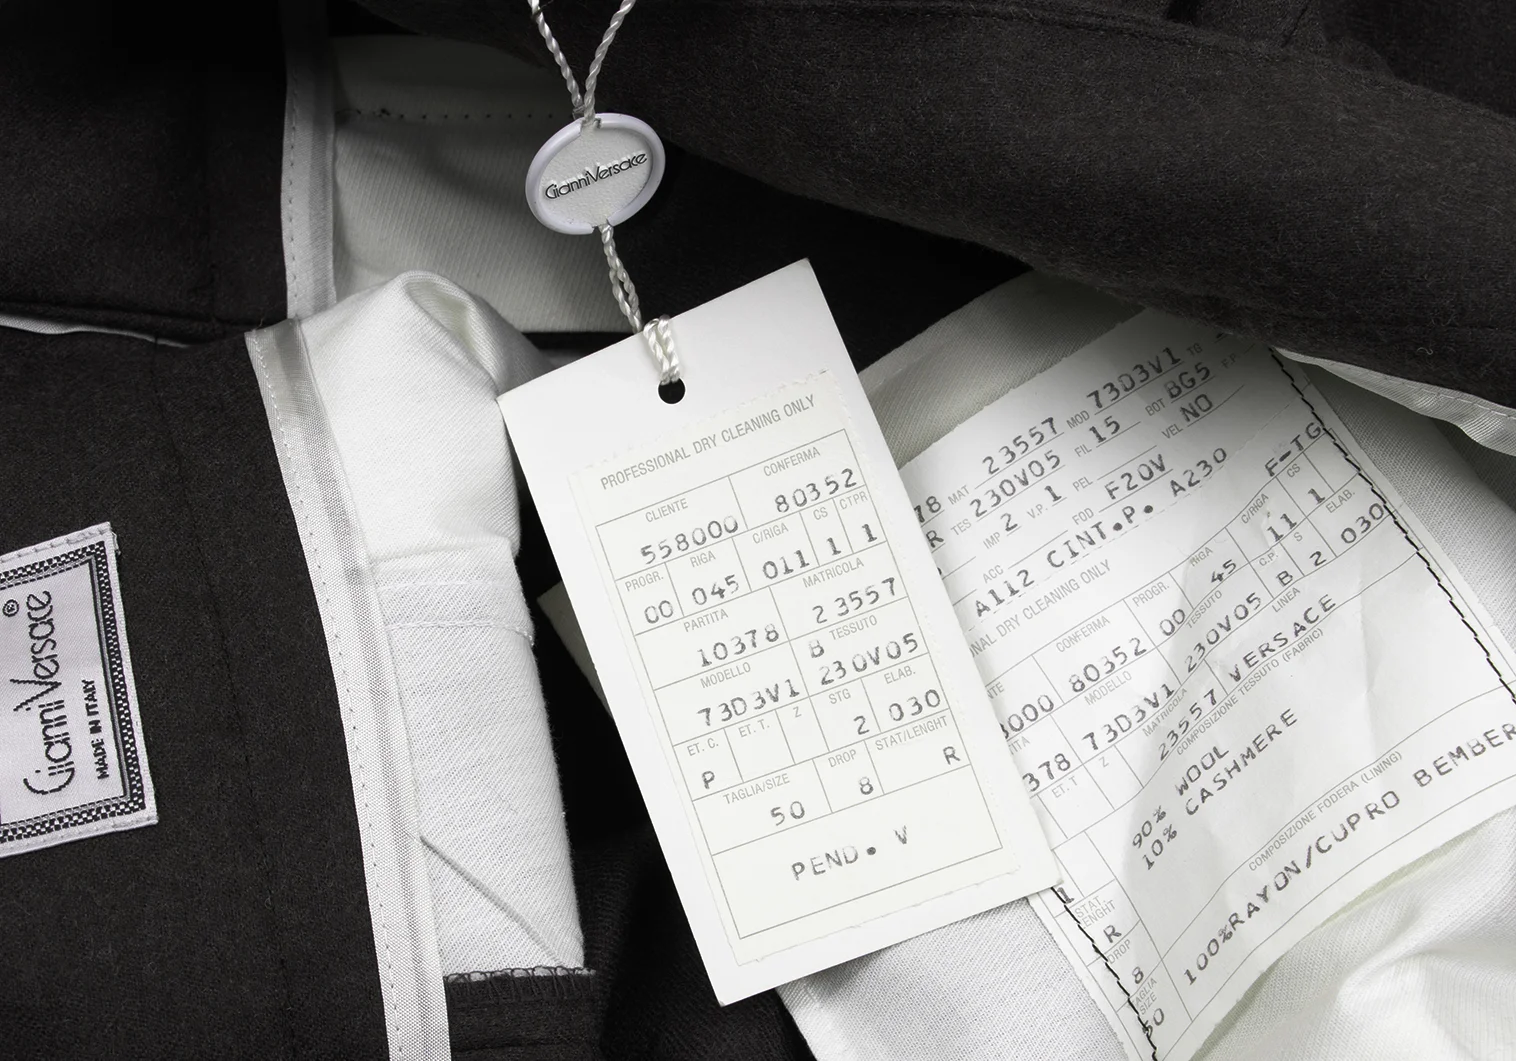 GianniVersace
GianniVersace®
MADE IN ITALY
PROFESSIONAL DRY CLEANING ONLY
CLIENTE CONFERMA
558000 80352
PROGR. RIGA C/RIGA CS CTPR
00 045 011 1 1
PARTITA MATRICOLA
10378 23557
MODELLO B TESSUTO
73D3V1 230V05
ET. C. ET. T. Z STG ELAB.
P 2 030
TAGLIA/SIZE DROP STAT/LENGHT
50 8 R
PEND. V
78 MAT 23557 MOD 73D3V1 TG
R TES 230V05 FIL 15 BOT BG5 F.P.
IMP 2 V.P. 1 PEL VEL NO
ACC FOD F20V
A112 CINT.P. A230 F-IG
NAL DRY CLEANING ONLY
NTE CONFERMA PROGR. RIGA C/RIGA CS
8000 80352 00 45 11 1
TITA MODELLO TESSUTO C.P. S ELAB.
378 73D3V1 230V05 B 2 030
ET. T Z MATRICOLA LINEA
23557 VERSACE
COMPOSIZIONE TESSUTO (FABRIC)
90% WOOL
10% CASHMERE
COMPOSIZIONE FODERA (LINING)
100%RAYON/CUPRO BEMBER
1
STAT.
ENGHT
R
DROP
8
AGLIA
SIZE
50